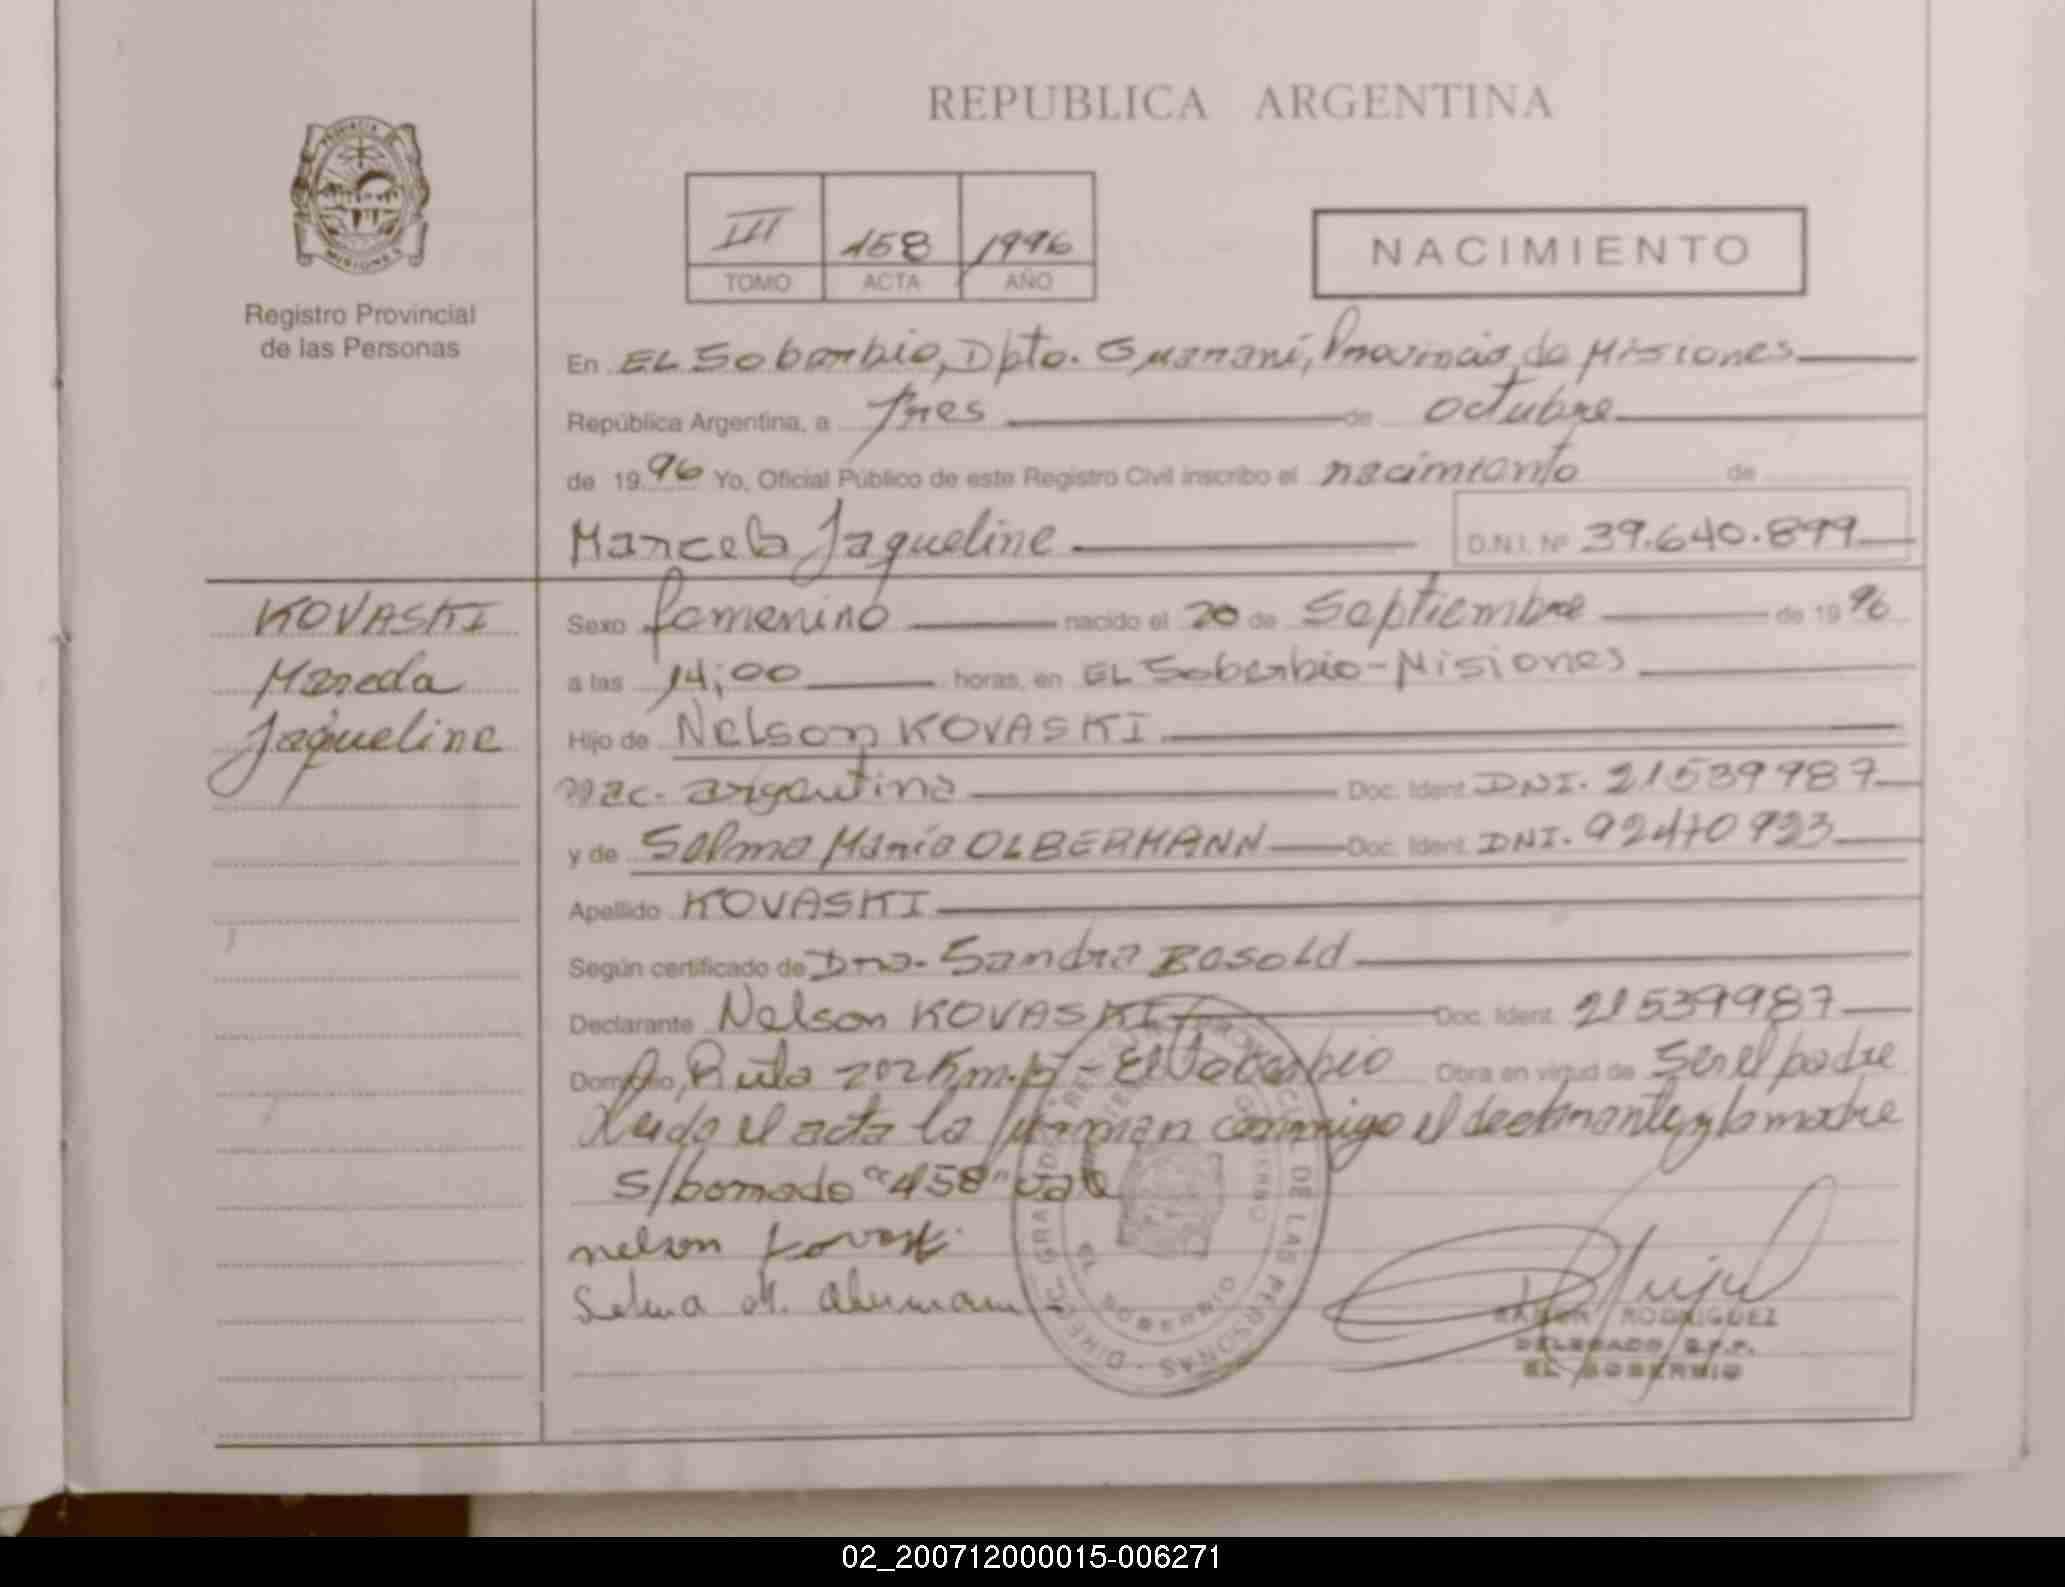 REPUBLICA ARGENTINA
PROVINCIA
MISIONES
Registro Provincial
de las Personas
III 458 1996
TOMO ACTA AÑO
NACIMIENTO
En EL Soberbio, Dpto. Guaraní, Provincia de Misiones
República Argentina, a tres de octubre
de 1996 Yo, Oficial Público de este Registro Civil inscribo el nacimiento de
Marcela Jaqueline D.N.I. Nº 39.640.899
KOVASKI
Marcela
Jaqueline
Sexo femenino nacido el 20 de Septiembre de 1996
a las 14;00 horas, en EL Soberbio-Misiones
Hijo de Nelson KOVASKI
nac. argentina Doc. Ident. DNI. 21539987
y de Selma María OLBERMANN Doc. Ident. DNI. 92470923
Apellido KOVASKI
Según certificado de Dra. Sandra BOSOLd
Declarante Nelson KOVASKI Doc. Ident. 21539987
Domicilio, Ruta 202 Km. - El Soberbio Obra en virtud de Ser el padre
Leida el acta la firman conmigo el declarante y la madre
s/borrado "458" vale
nelson Kovaski
Selma M.
EL SOBERBIO
RAMON RODRIGUEZ
DELEGADO R.P.P.
EL SOBERBIO
02_200712000015-006271